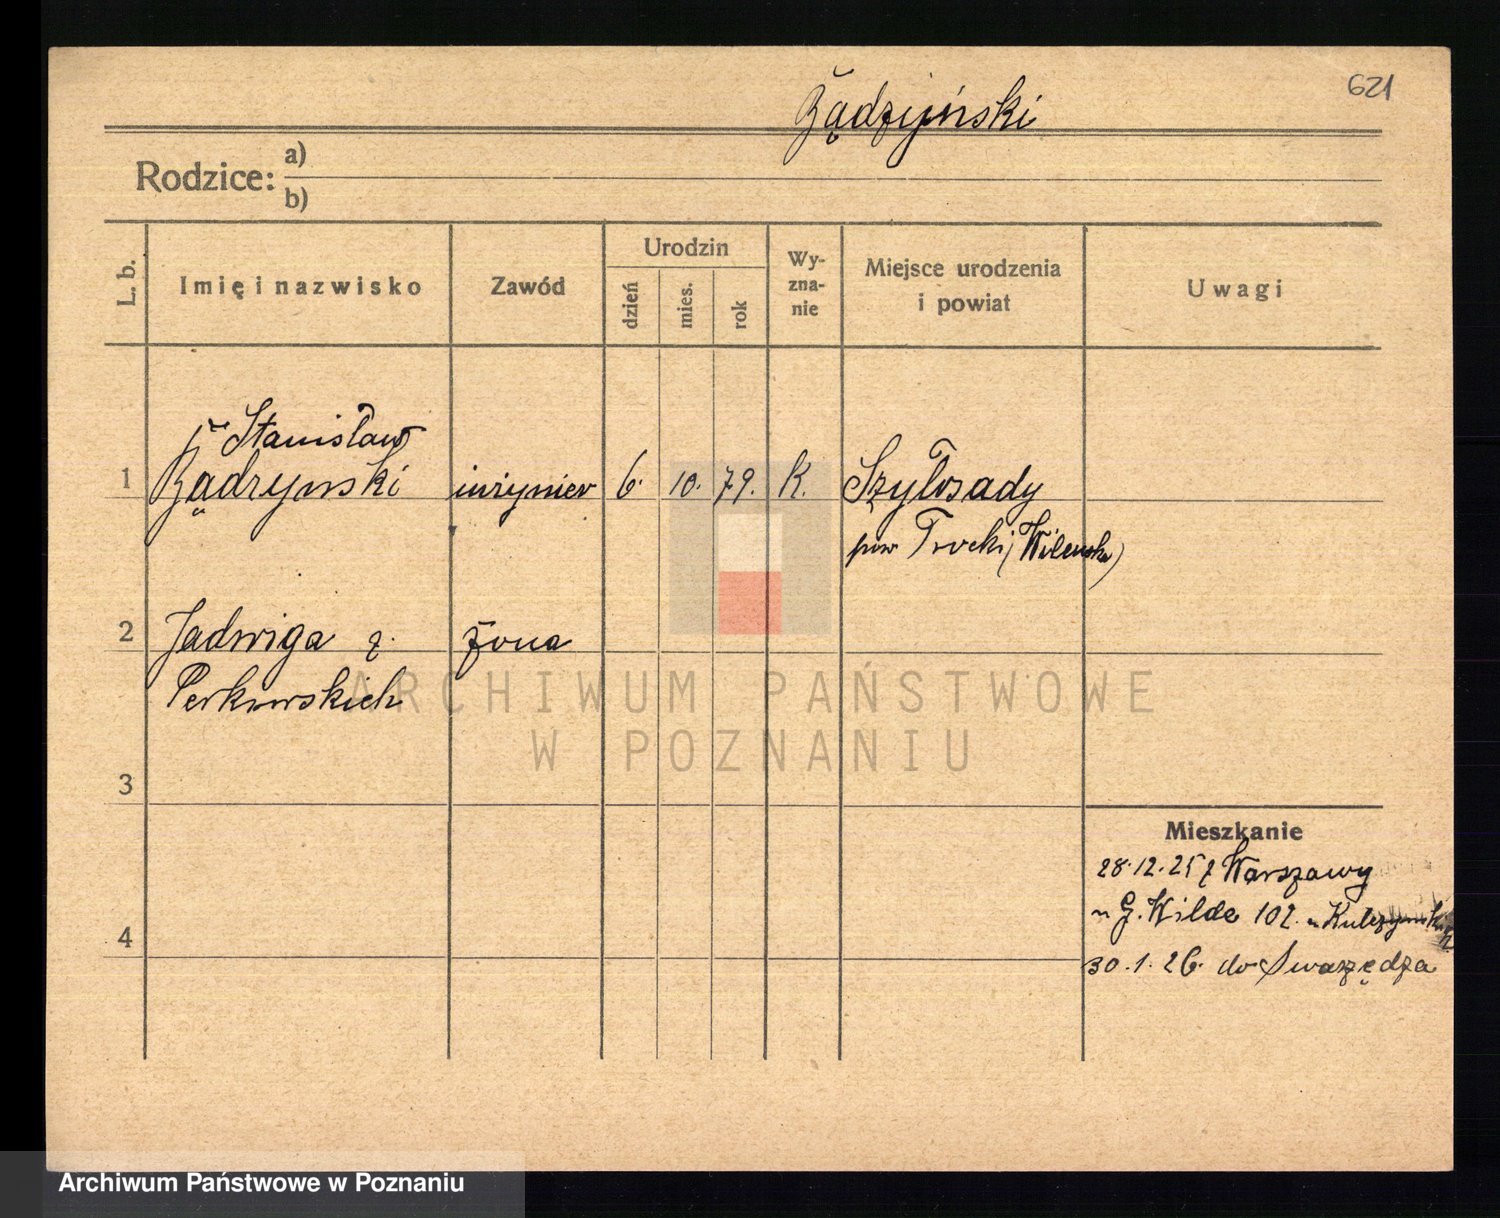 621
Żądzyński
Rodzice: a)
b)
L. b.
Imię i nazwisko
Zawód
Urodzin
dzień
mies.
rok
Wy-
zna-
nie
Miejsce urodzenia
i powiat
Uwagi
Stanisław
1 Żądzynski inżynier 6. 10. 79. K. Szyłosady
pow Trocki (Wileńska)
2 Jadwiga z. żona
Perkowskich
3
4
Mieszkanie
28.12.25 z Warszawy
G. Wilde 102. u
30.1.26. do Swarzędza
ARCHIWUM PAŃSTWOWE
W POZNANIU
Archiwum Państwowe w Poznaniu